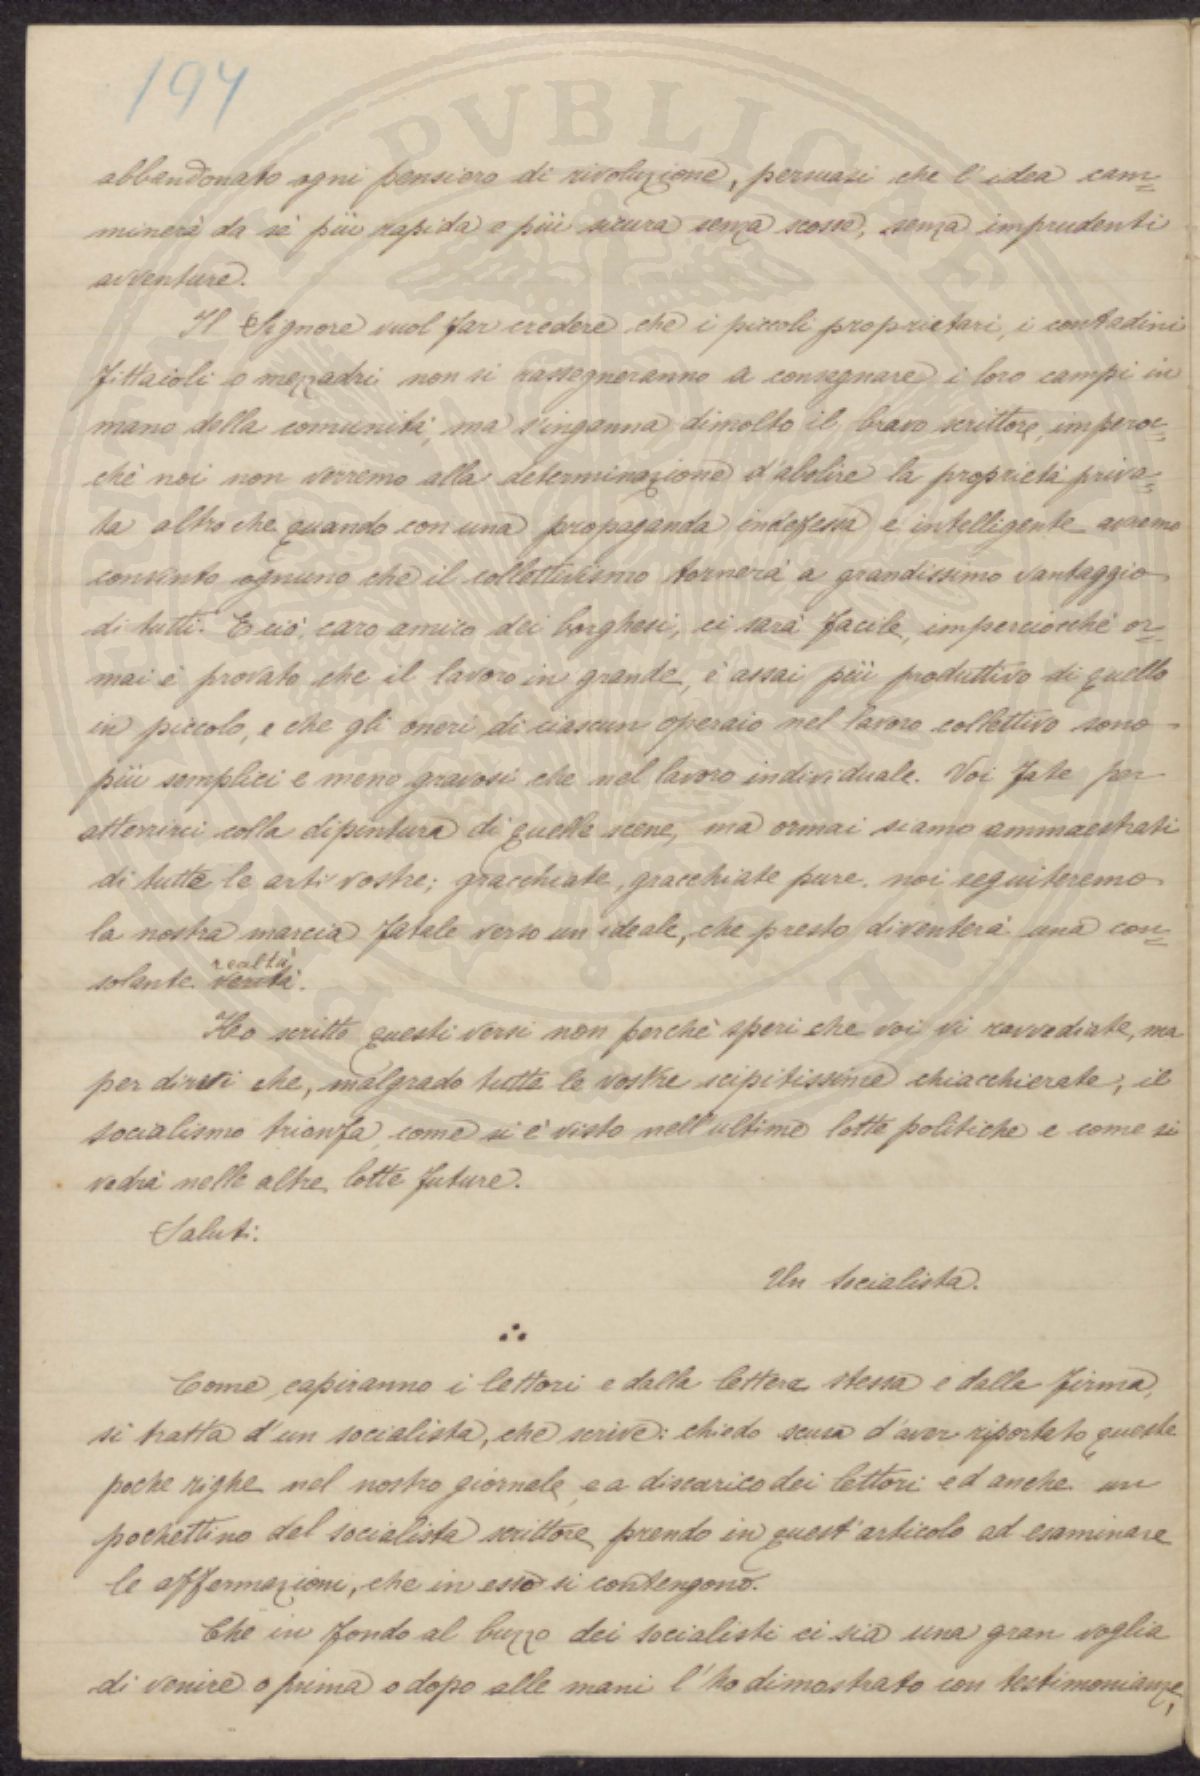 194
abbandonato ogni pensiero di rivoluzione, persuasi che l'idea cam=
minerà da sè più rapida e più sicura senza scosse, senza imprudenti
avventure.
Il Signore vuol far credere che i piccoli proprietari, i contadini
fittaioli o mezzadri non si rassegneranno a consegnare i loro campi in
mano della comunità, ma s'inganna dimolto il bravo scrittore, imperoc=
chè noi non verremo alla determinazione d'abolire la proprietà priva=
ta altro che quando con una propaganda indefessa e intelligente avremo
convinto ognuno che il collettivismo tornerà a grandissimo vantaggio
di tutti. E ciò, caro amico dei borghesi, ci sarà facile, imperciocchè or=
mai è provato che il lavoro in grande, è assai più produttivo di quello
in piccolo, e che gli oneri di ciascun operaio nel lavoro collettivo sono
più semplici e meno gravosi che nel lavoro individuale. Voi fate per
atterrirci colla dipintura di quelle scene, ma ormai siamo ammaestrati
di tutte le arti vostre; gracchiate, gracchiate pure. noi seguiteremo
la nostra marcia fatale verso un ideale, che presto diventerà una con=
realtà
solante verità.
Ho scritto questi versi non perchè speri che voi vi ravvediate, ma
per dirvi che, malgrado tutte le vostre scipitissime chiacchierate, il
socialismo trionfa, come si è visto nell'ultime lotte politiche e come si
vedrà nelle altre lotte future.
Saluti.
Un Socialista.
Come capiranno i lettori e dalla lettera stessa e dalla firma,
si tratta d'un socialista, che scrive: chiedo scusa d'aver riportato queste
poche righe nel nostro giornale, e a discarico dei lettori ed anche un
pochettino del socialista scrittore prendo in quest'articolo ad esaminare
le affermazioni, che in esso si contengono.
Che in fondo al buzzo dei socialisti ci sia una gran voglia
di venire o prima o dopo alle mani l'ho dimostrato con testimonianze,